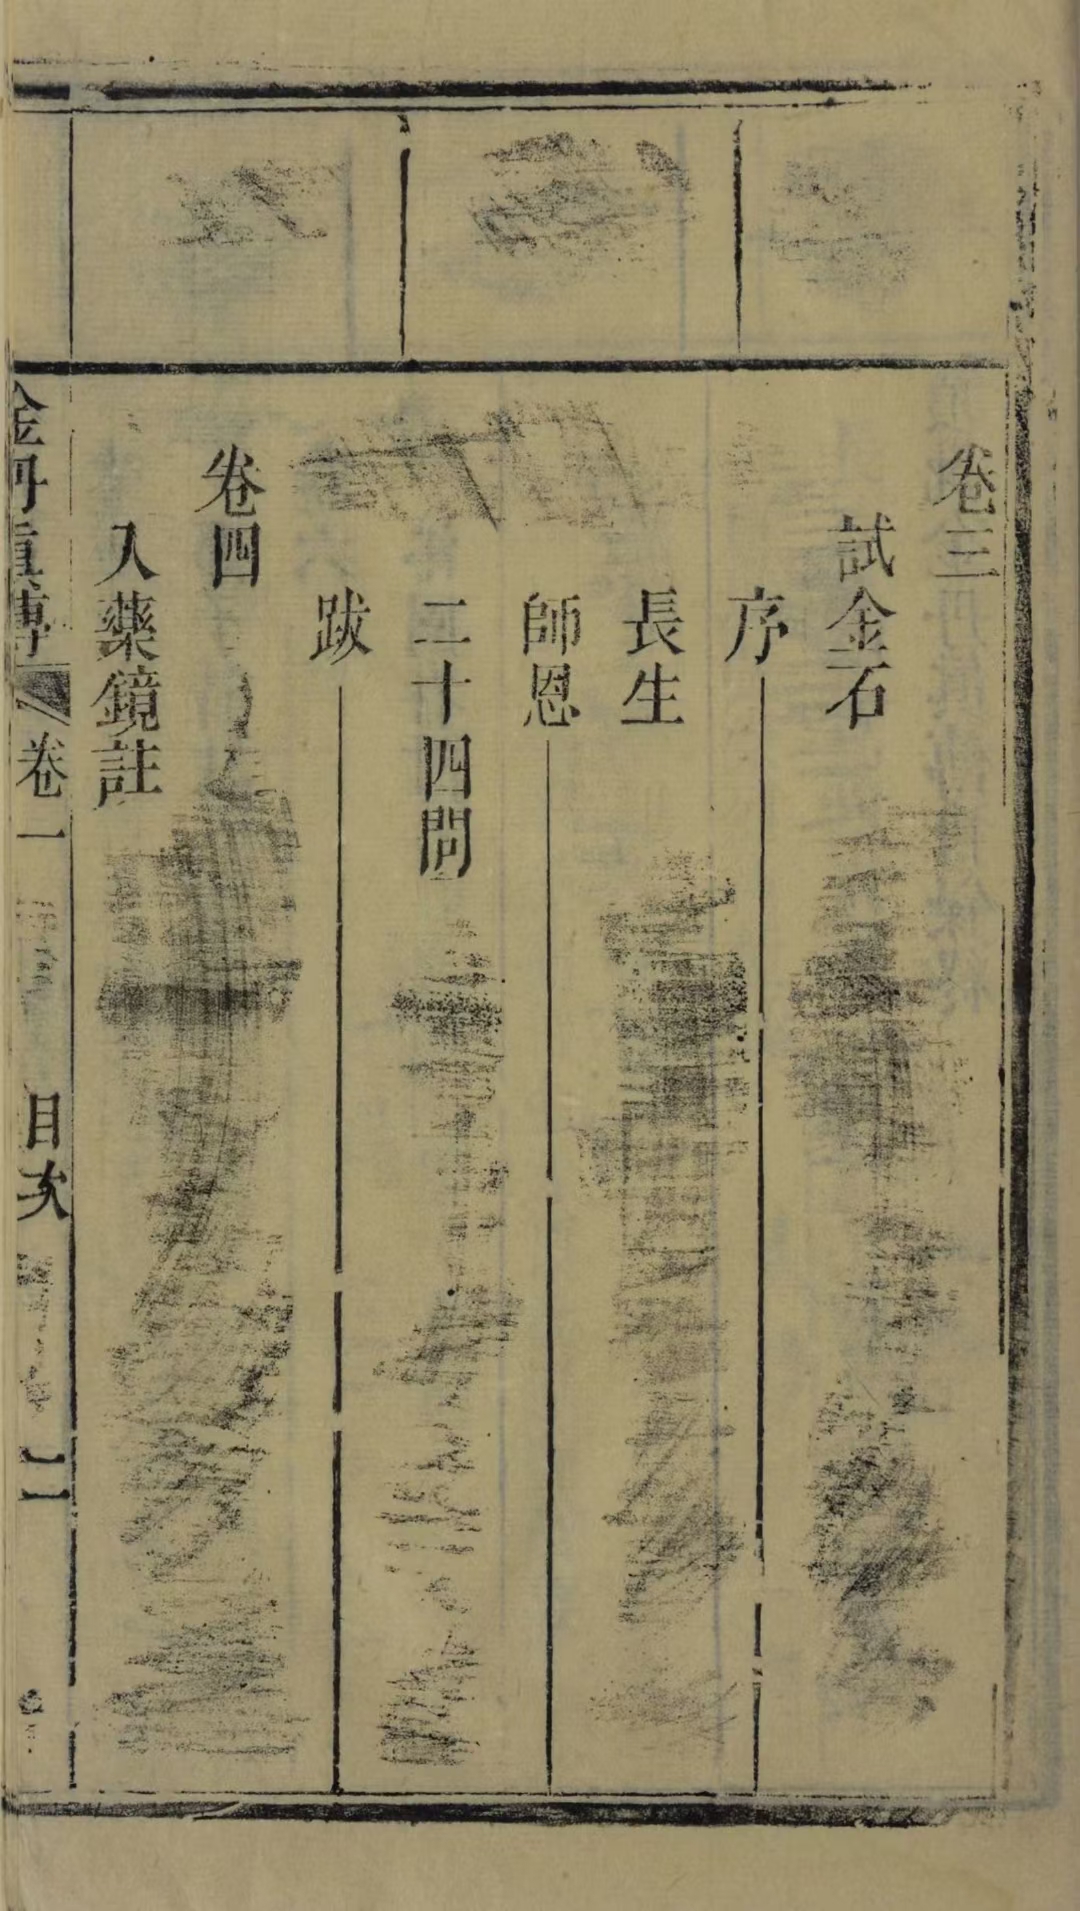 卷三
試金石
序
長生
師恩
二十四問
跋
卷四
入藥鏡註
金丹真傳 卷一 目次 二